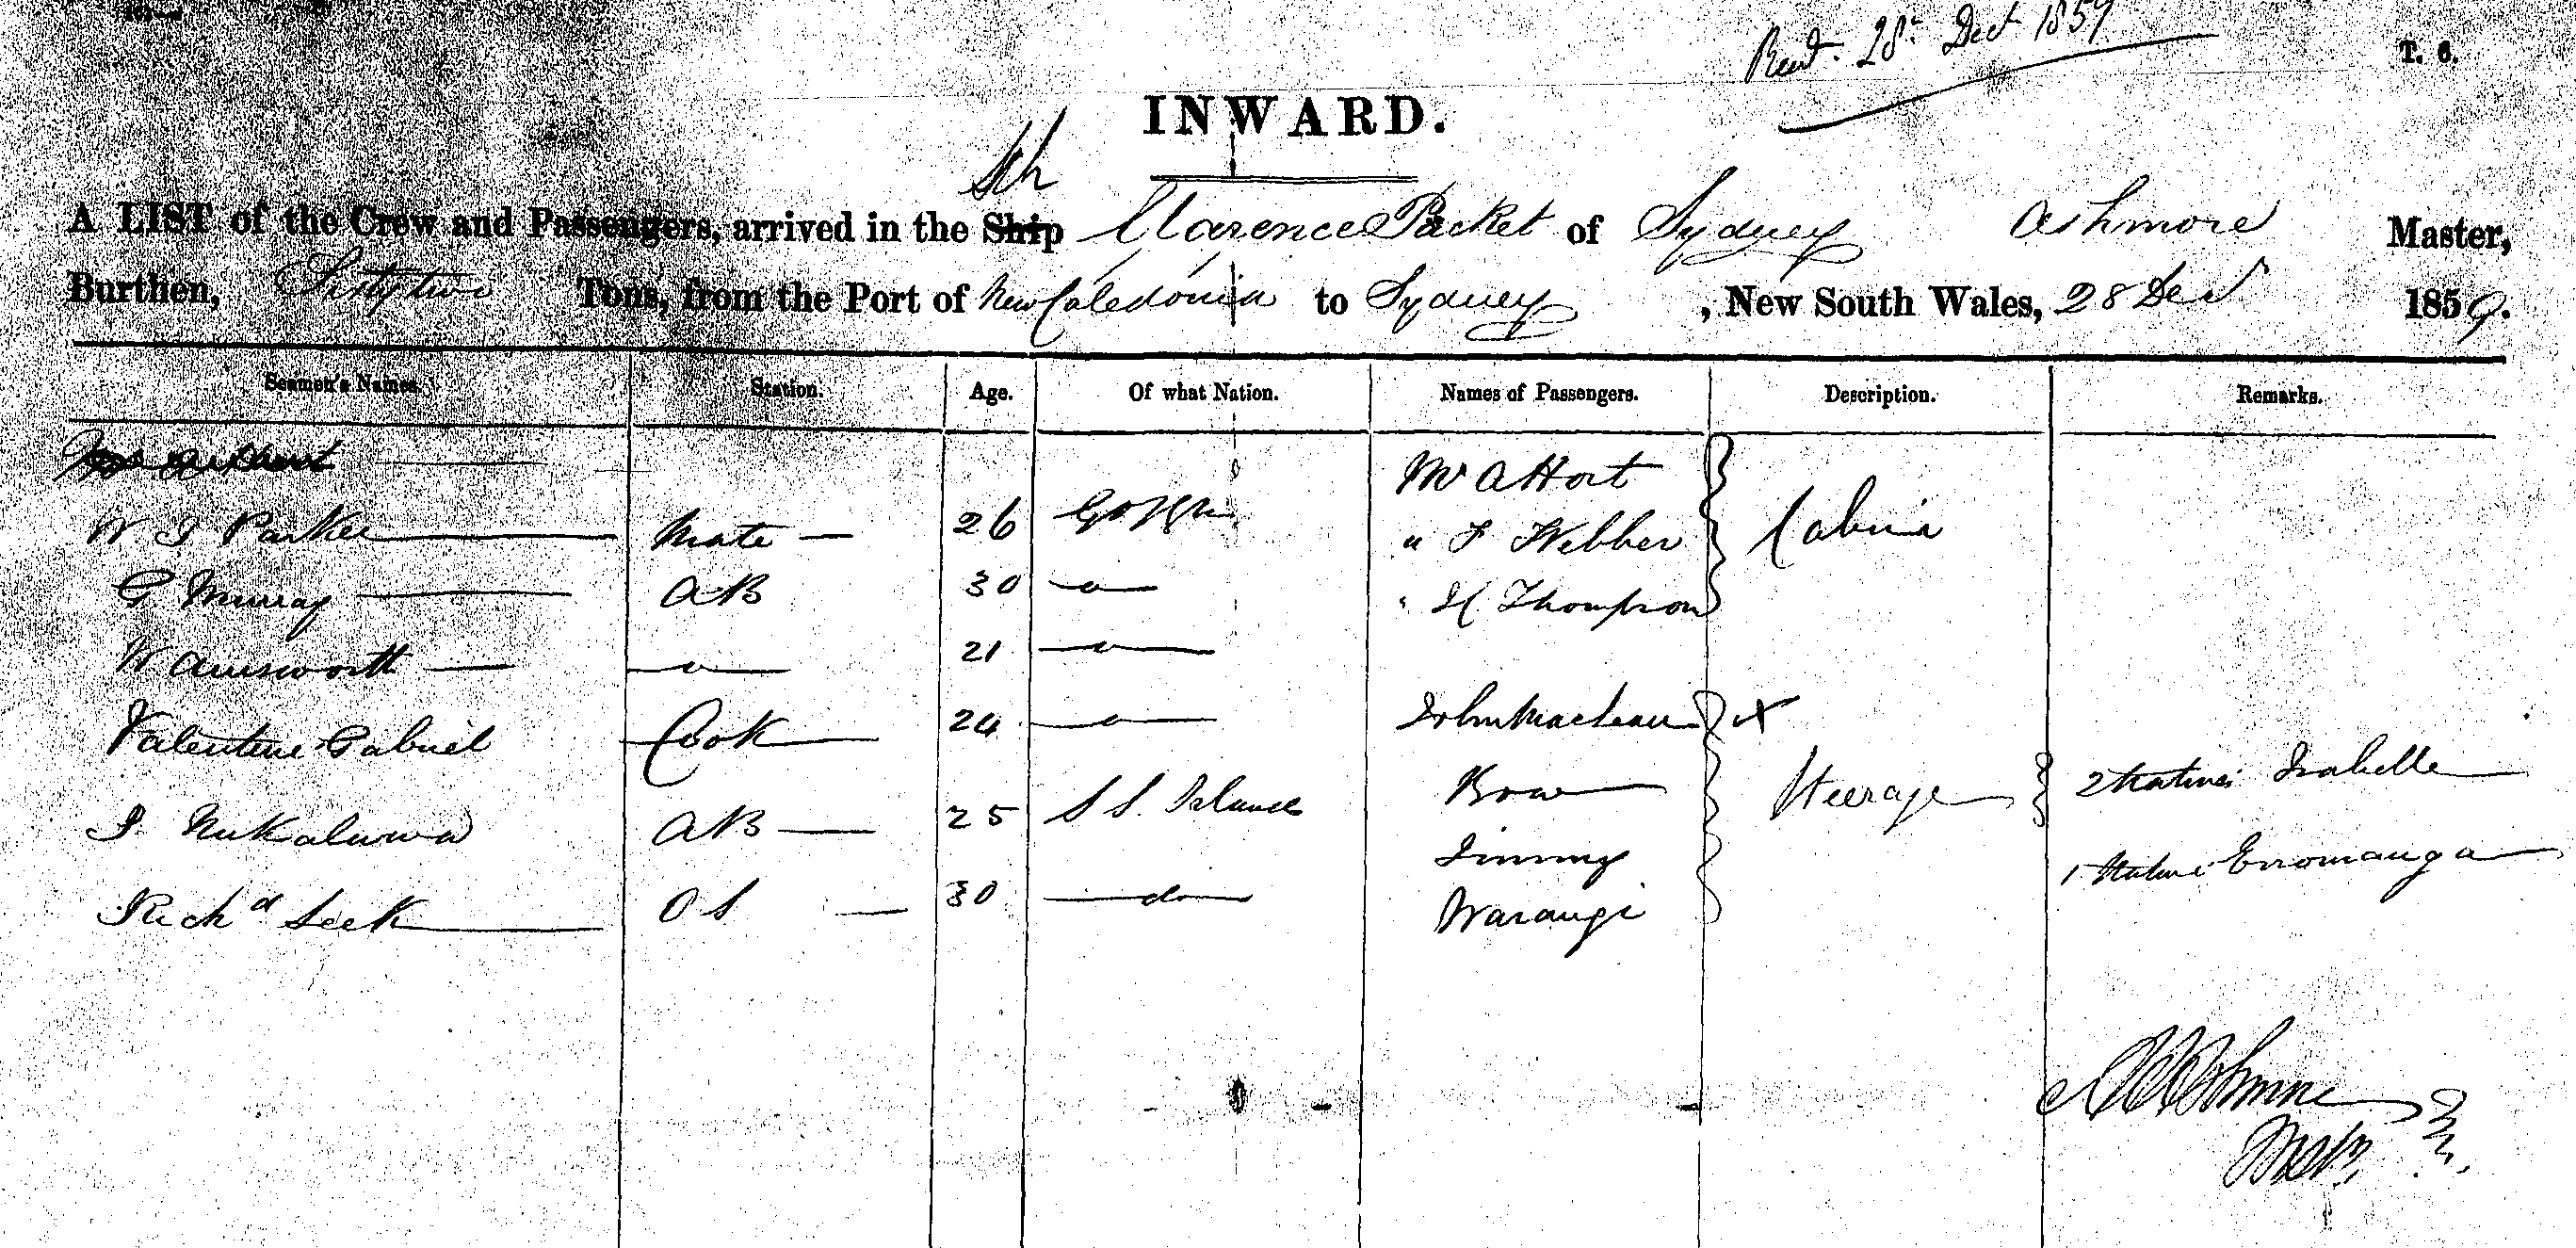 28th Dec 1859
T. 6.
INWARD.
Sch
A LIST of the Crew and Passengers, arrived in the Ship Clarence Packet of Sydney Ashmore Master,
Burthen, Sixty two Tons, from the Port of New Caledonia to Sydney, New South Wales, 28 Dec 1859.
Seamen's Names. Station. Age. Of what Nation. Names of Passengers. Description. Remarks.
Mr A Hort
W J Parker Mate 26 " F Webber Cabin
G Murray AB 30 " H Thompson
W Ainsworth 21
Valentine Gabriel Cook 24 John Maclean x
AB 25 S S. Islands Steerage 2 Natives Isabelle
Jimmy 1 Native Erromanga
Richd Seek O S 30 do Warangi